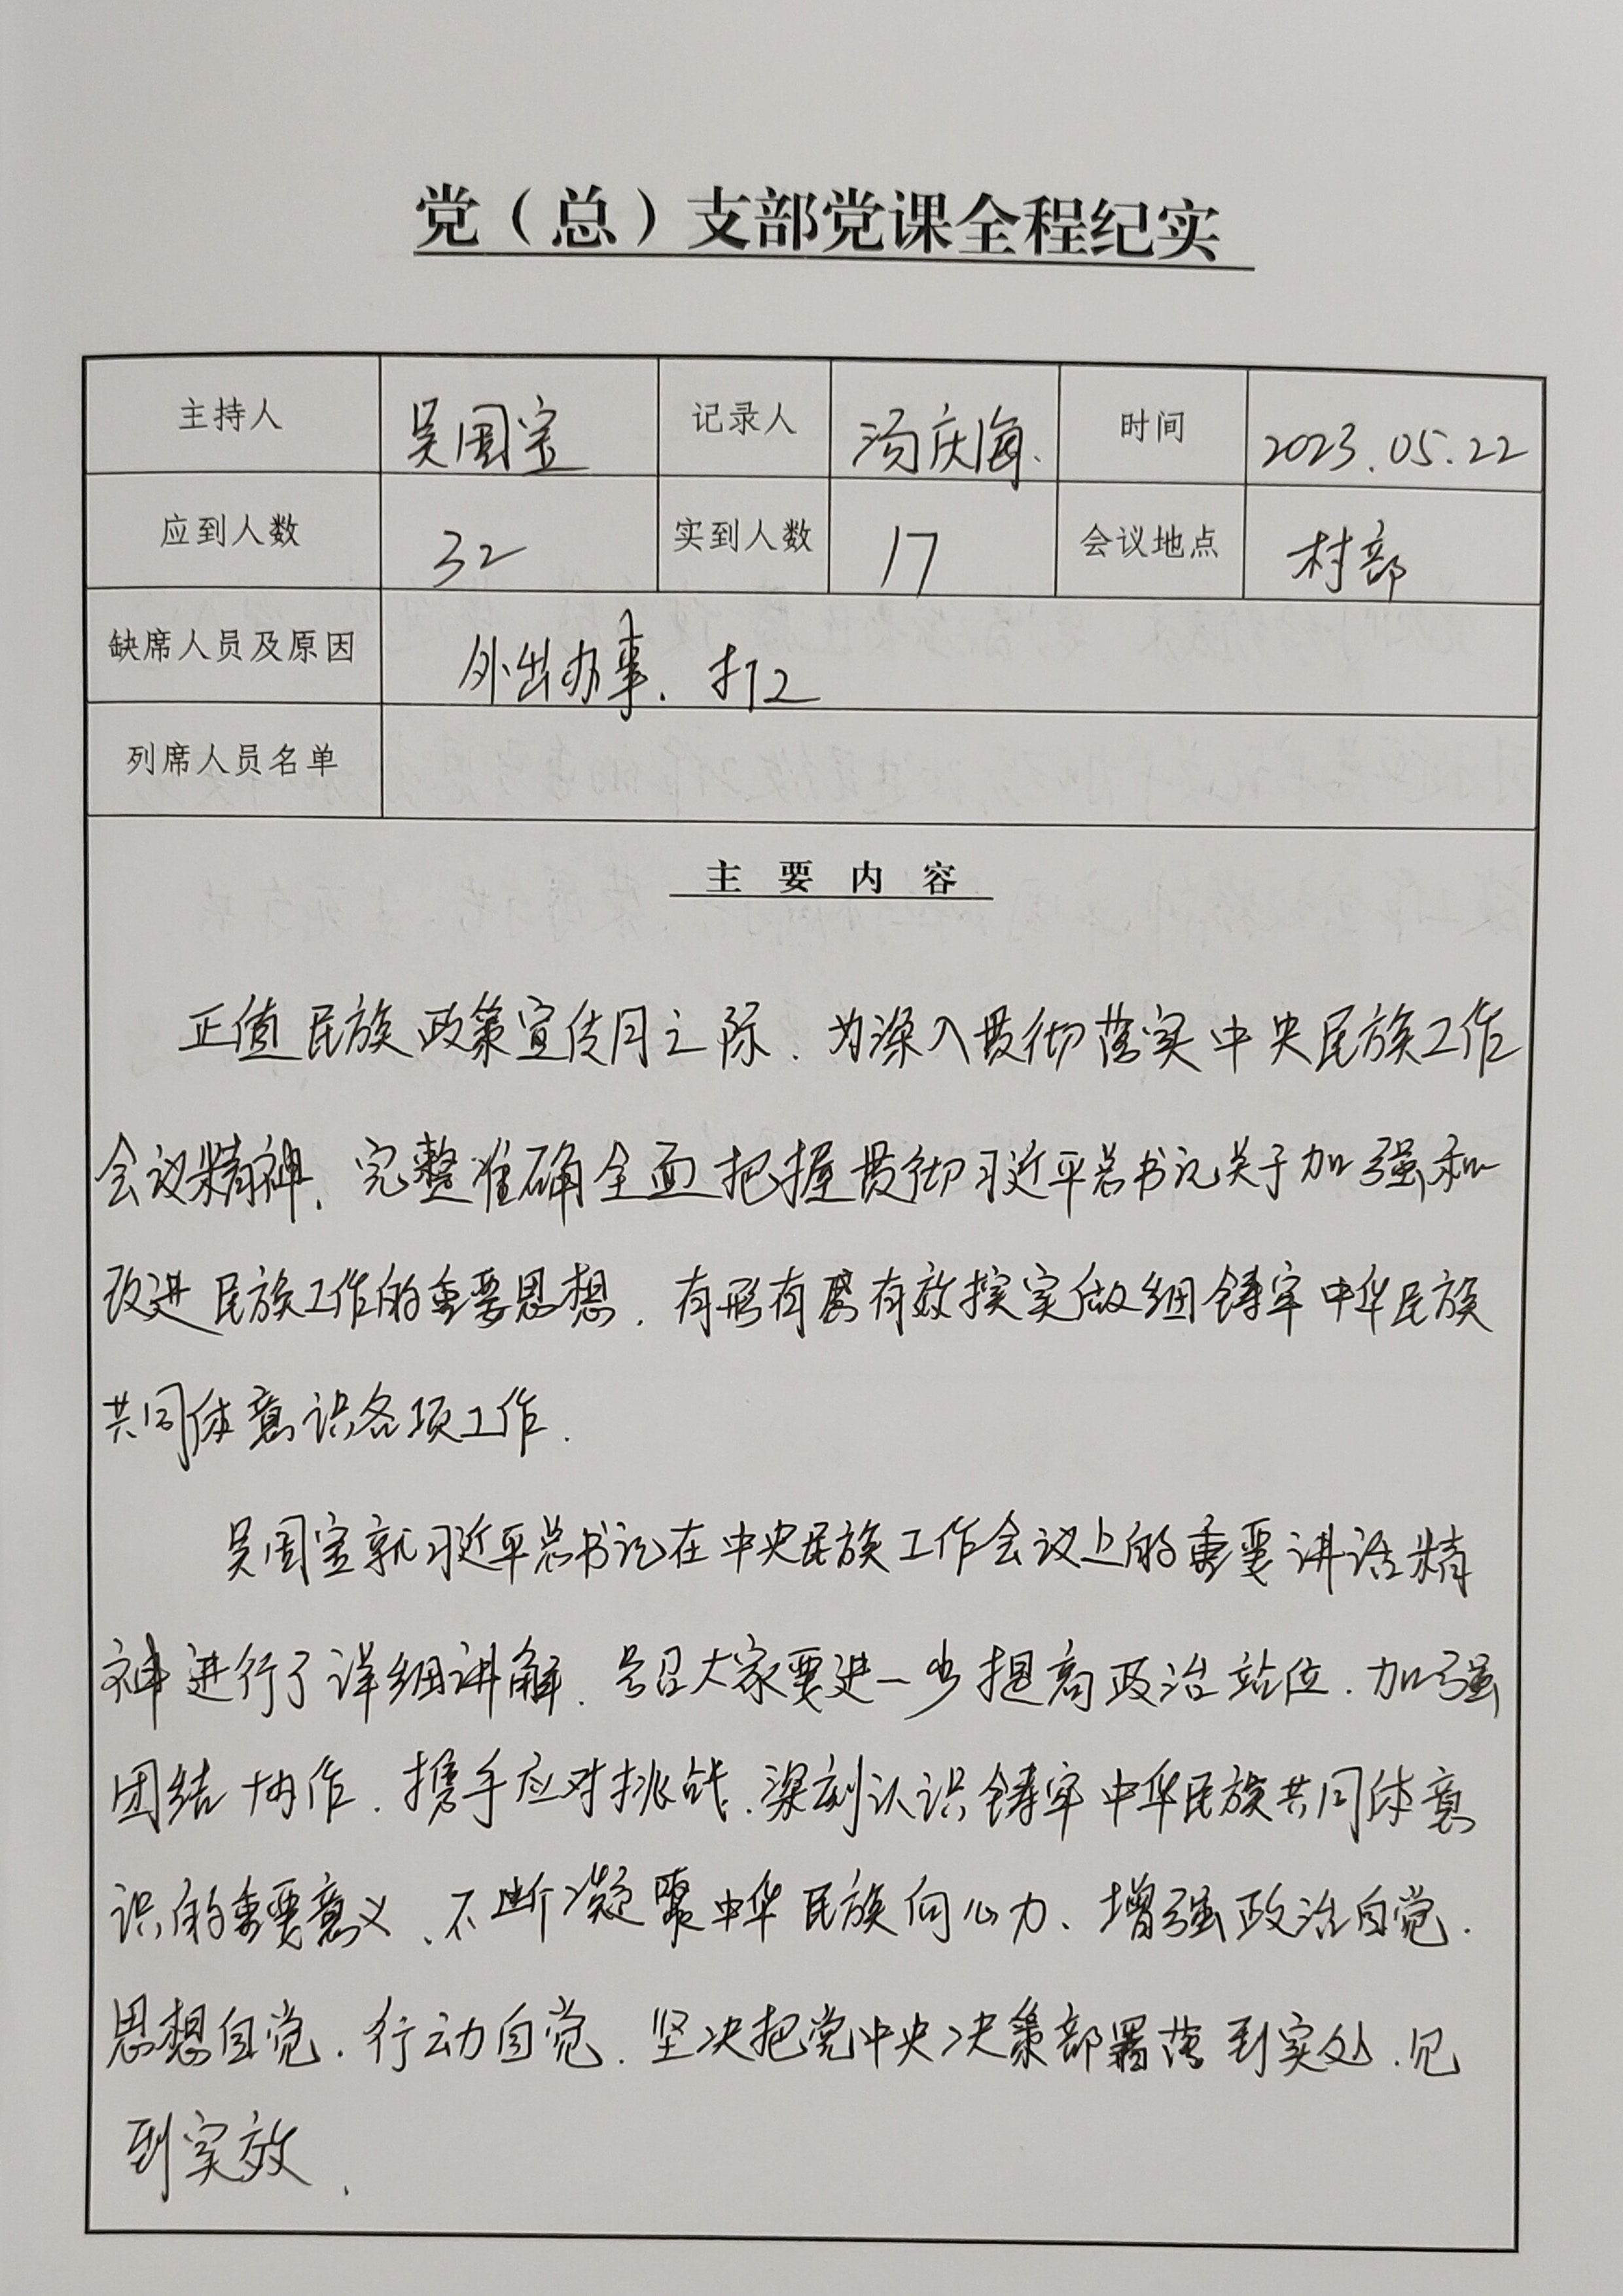 党（总）支部党课全程纪实
主持人 吴国宝 记录人 汤庆海 时间 2023.05.22
应到人数 32 实到人数 17 会议地点 村部
缺席人员及原因 外出办事、打工
列席人员名单
主要内容
正值民族政策宣传月之际、为深入贯彻落实中央民族工作
会议精神、完整准确全面把握贯彻习近平总书记关于加强和
改进民族工作的重要思想、有形有感有效摸实做细铸牢中华民族
共同体意识各项工作.
吴国宝就习近平总书记在中央民族工作会议上的重要讲话精
神进行了详细讲解、号召大家要进一步提高政治站位、加强
团结协作、携手应对挑战、深刻认识铸牢中华民族共同体意
识的重要意义、不断凝聚中华民族向心力、增强政治自觉.
思想自觉.行动自觉.坚决把党中央决策部署落到实处.见
到实效.